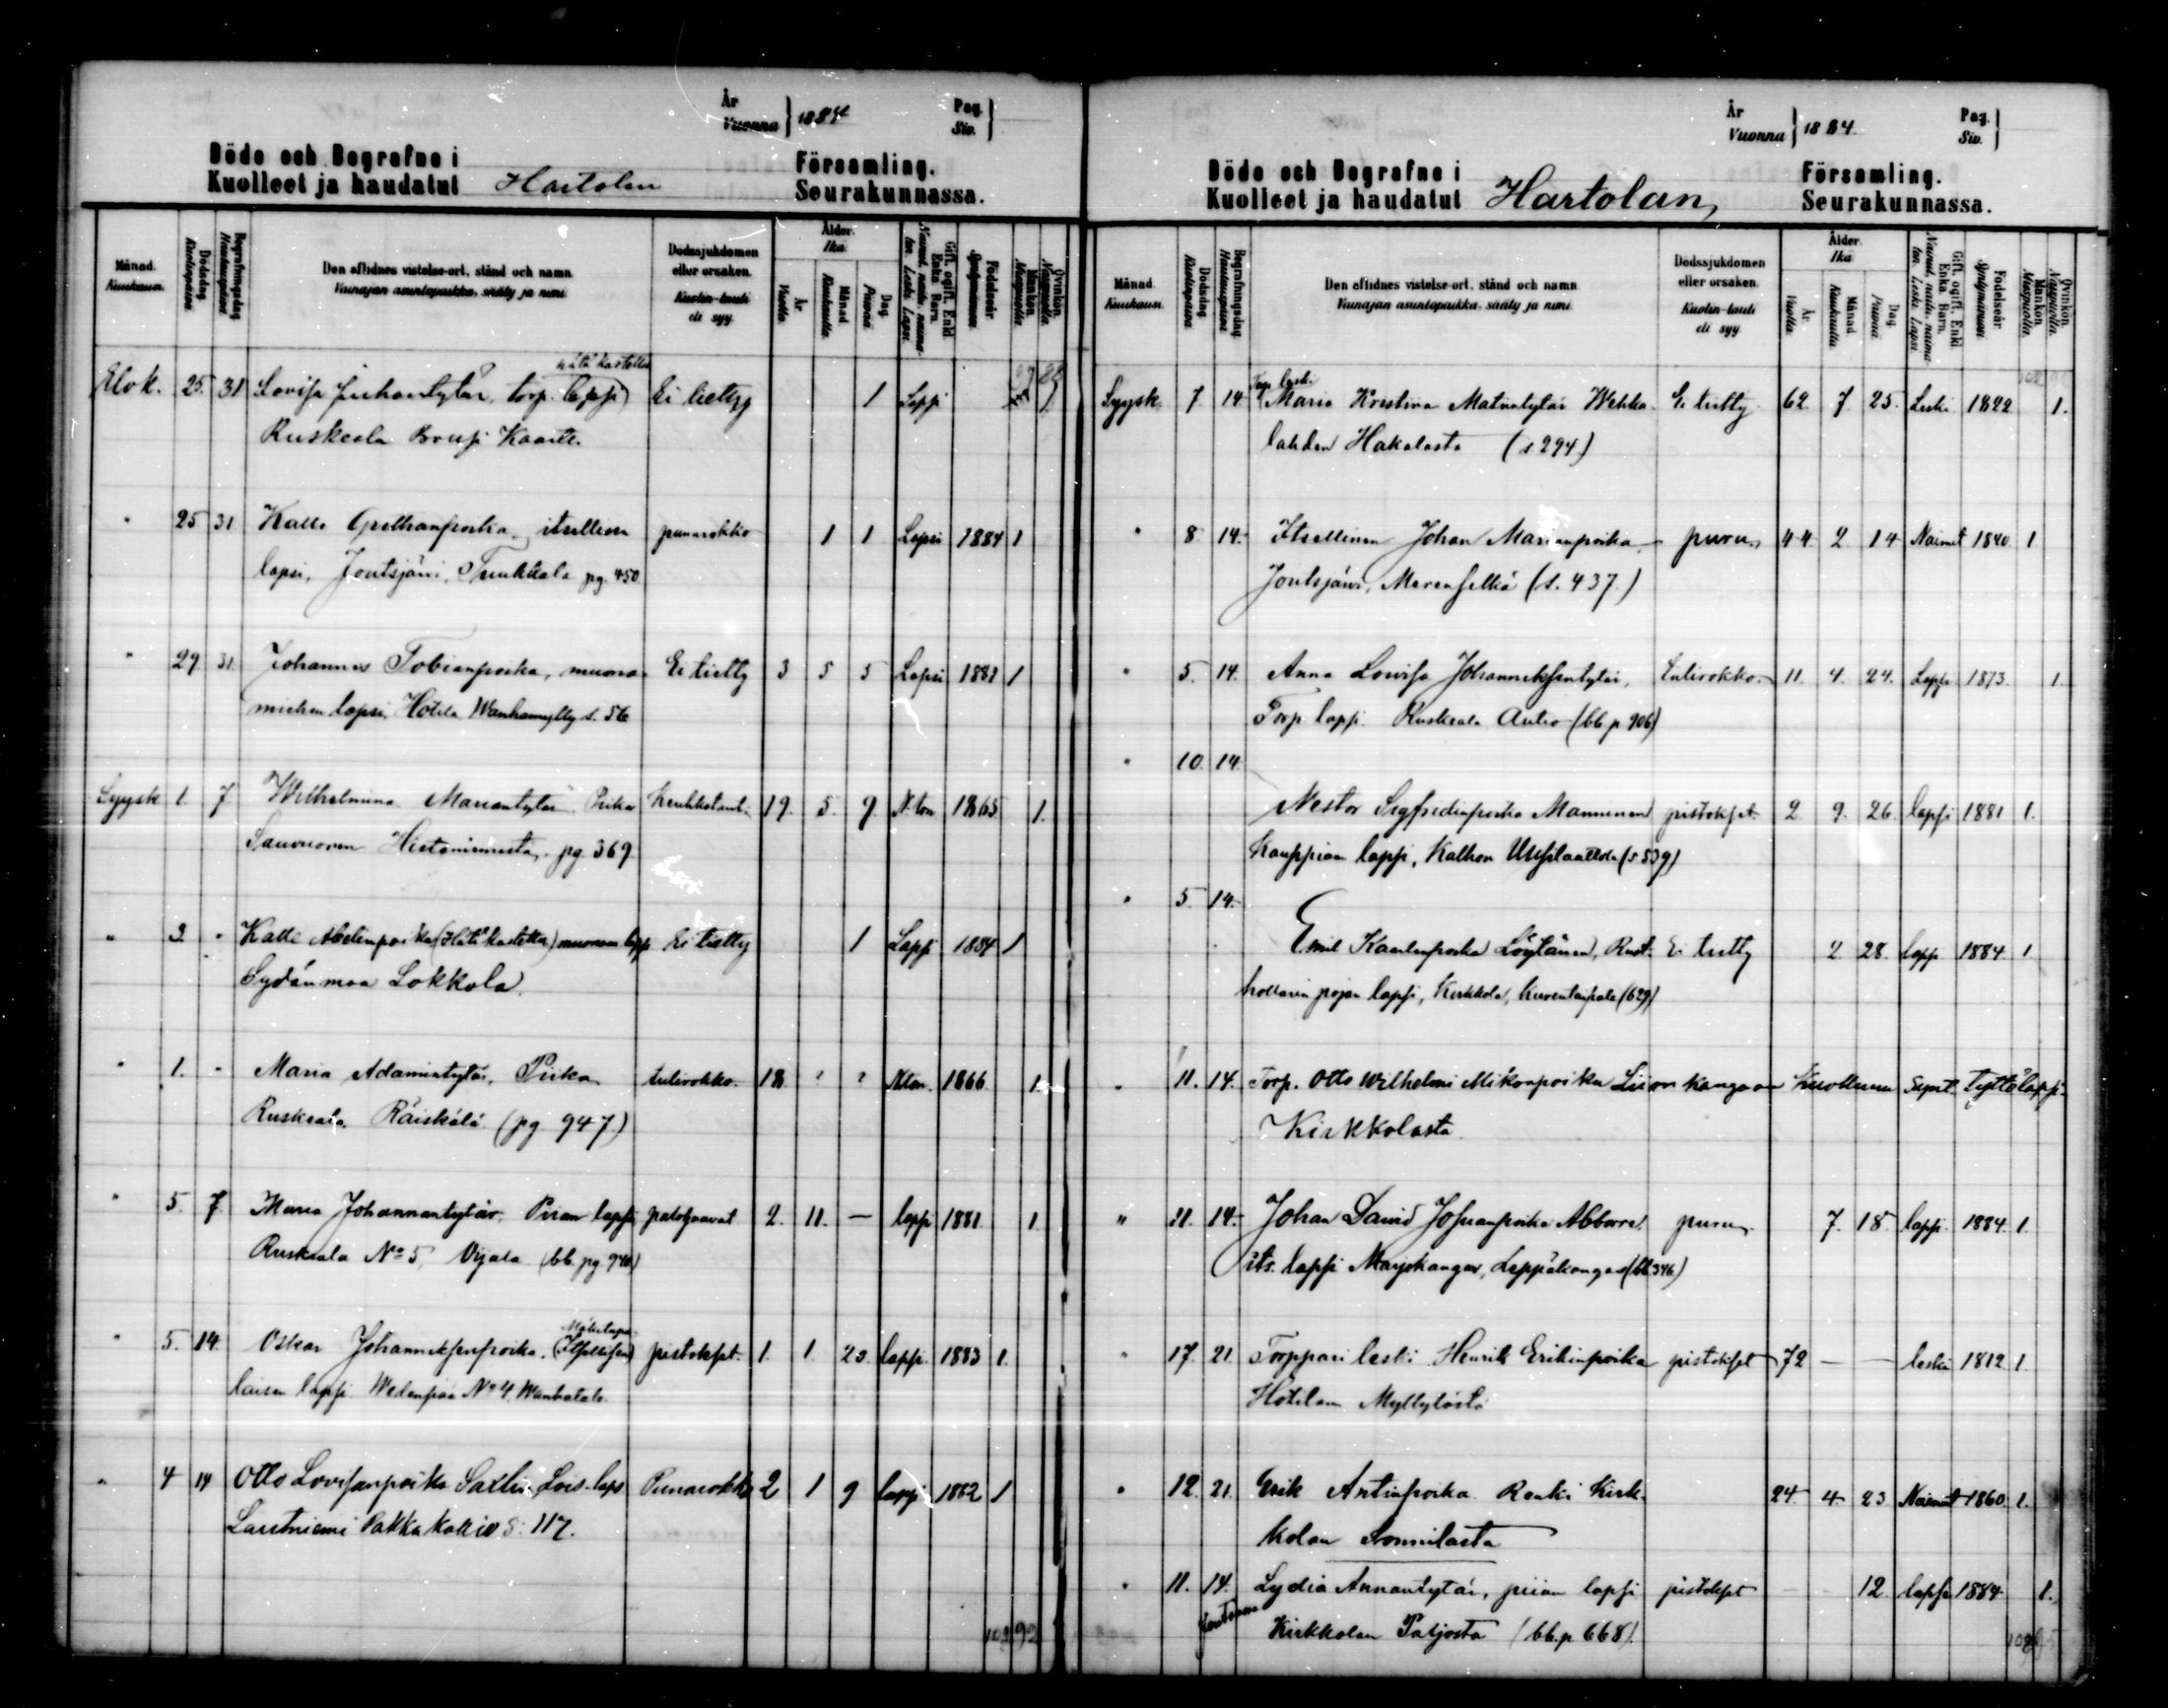 År
Vuonna } 1884
Pag.
Siv. }
Döde och Begrafne i
Kuolleet ja haudatut Hartolan
Församling.
Seurakunnassa.
Månad. Kuukausi.
Dödsdag Kuolinpäivä
Begrafningsdag Hautauspäivä
Den aflidnes vistelse-ort, stånd och namn.
Vainajan asuntopaikka, sääty ja nimi
Dödssjukdomen eller orsaken.
Kuolin-tauti eli syy.
Ålder. Ikä
År Vuotta
Månad Kuukautta
Dag Päivää
Gift, ogift, Enkl. Enka, Barn.
Födelseår Syntymävuosi
Mankön Miespuolia
Qvinkön Naispuolia
hätä kastettu
Elok. 25. 31 Lovisa Juhantytär, torp. lapsi Ei tietty 1 Lapsi 1
Ruskeala
" 25 31 Kalle itsellisen punarokko 1 1 Lapsi 1884 1
lapsi, Joutsjärvi, pg. 450
" 29 31 Johannes Tobianpoika, muona Ei tietty 3 5 5 Lapsi 1881 1
miehen lapsi, Hotila Wanhamylly s. 56
Syysk 1. 7 Wilhelmina Mariantytär Piika Keuhkotauti 19. 5. 9 N:ton 1865 1.
pg. 369
" 3. " Kalle Abelinpoika (Hätä kastettu) muonam. laps Ei tietty 1 Lapsi 1884 1
Sydänmaa Lokkola
" 1. " Maria Adamintytär, Piika tulirokko. 18 ? ? Nton. 1866 1.
Ruskeala. Räiskälä (pg. 947)
" 5. 7. Maria Johannantytär, Piian lapsi 2. 11. — lapsi 1881. 1
Ruskeala No 5, (bb. pg. 940)
Mäkitupa-
" 5. 14. Oskar Johanneksenpoika, (Itsellisen) pistokset. 1. 1. 23. lapsi 1883 1.
laisen lapsi Wedenpää No 4, Wanhatalo.
" 4 14 Otto Lovisanpoika Saxlin Lois-laps Punarokko 2 1 9 lapsi 1882 1
Pakkakallio S: 117.
År
Vuonna } 1884.
Pag.
Siv. }
Döde och Begrafne i
Kuolleet ja haudatut Hartolan
Församling.
Seurakunnassa.
Månad. Kuukausi.
Dödsdag Kuolinpäivä
Begrafningsdag Hautauspäivä
Den aflidnes vistelse-ort, stånd och namn.
Vainajan asuntopaikka, sääty ja nimi
Dödssjukdomen eller orsaken.
Kuolin-tauti eli syy.
Ålder. Ikä
År Vuotta
Månad Kuukautta
Dag Päivää
Gift, ogift, Enkl. Enka, Barn.
Födelseår Syntymävuosi
Mankön Miespuolia
Qvinkön Naispuolia
Torp. leski
Syysk. 7. 14 Maria Kristina Matintytär Wehka- Ei tietty 62. 7. 25. Leski 1822 1.
lahden Hakalasta (s. 294)
" 8 14. Itsellinen Johan Marianpoika puru 44. 2. 14 Nainut 1840 1
Joutsjärvi, Marenselkä (s. 437.)
" 5. 14. Anna Lovisa Johanneksentytär, tulirokko. 11. 4. 24. Lapsi. 1873. 1.
Torp. lapsi. Ruskeala Autio (bb. p. 906)
" 10. 14.
Nestor Sigfridinpoika Manninen pistokset. 2 9. 26. lapsi 1881 1.
Kauppiaan lapsi, Kalhon (s. 539)
" 5. 14.
Emil Kaarlenpoika Löytänen, Rust. Ei tietty 2 28. laps 1884. 1.
hollarin pojan lapsi, Kirkkola, (629)
" 11. 14. Torp. Otto Wilhelmi Mikonpoika Liinonkangaan Kuolleena Synt. Tyttölapsi.
Kirkkolasta
" 11. 14. Johan David Johanpoika Abborre, puru 7. 18 lapsi. 1884. 1.
its. lapsi Leppäkangas (bb 346)
" 17. 21. Torppari leski Henrik Erikinpoika pistokset 72 — — leski 1812 1.
Hotilan Myllylästä
" 12. 21. Erik Antinpoika Renki Kirk- 24. 4 23. Nainut 1860. 1.
kolan Sonnilasta
" 11. 14. Lydia Annantytär, piian lapsi pistokset 12. lapse 1884. 1.
Kirkkolan Patjosta (bb. p 668).